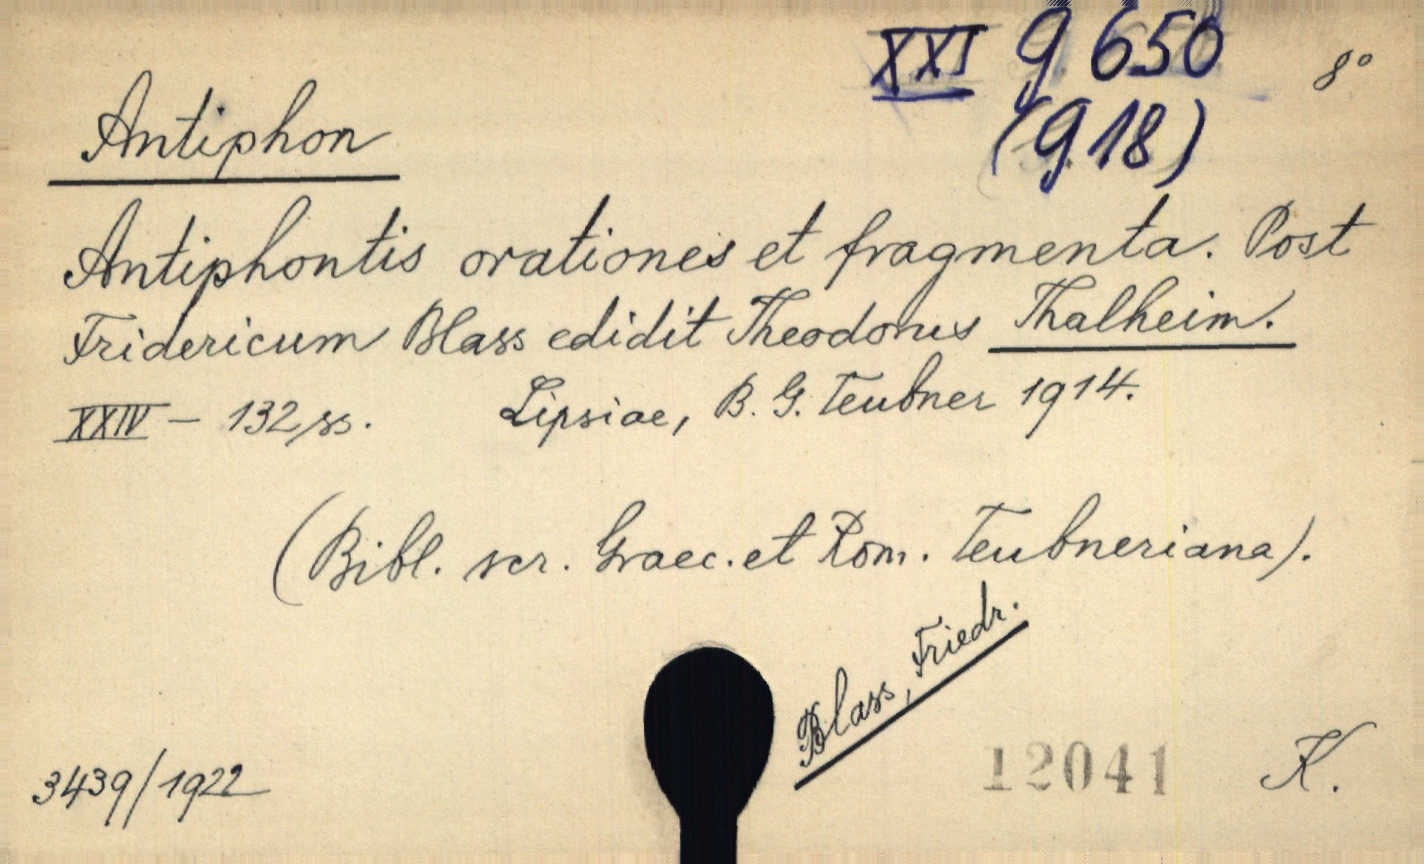 XXI g 650 8°
(g 18)
Antiphon
Antiphontis orationes et fragmenta. Post
Fridericum Blass edidit Theodorus Thalheim.
XXIV – 132 ss. Lipsiae, B. G. Teubner 1914.
(Bibl. scr. Graec. et Rom. Teubneriana).
Blass, Friedr.
3439/1922 12041 K.